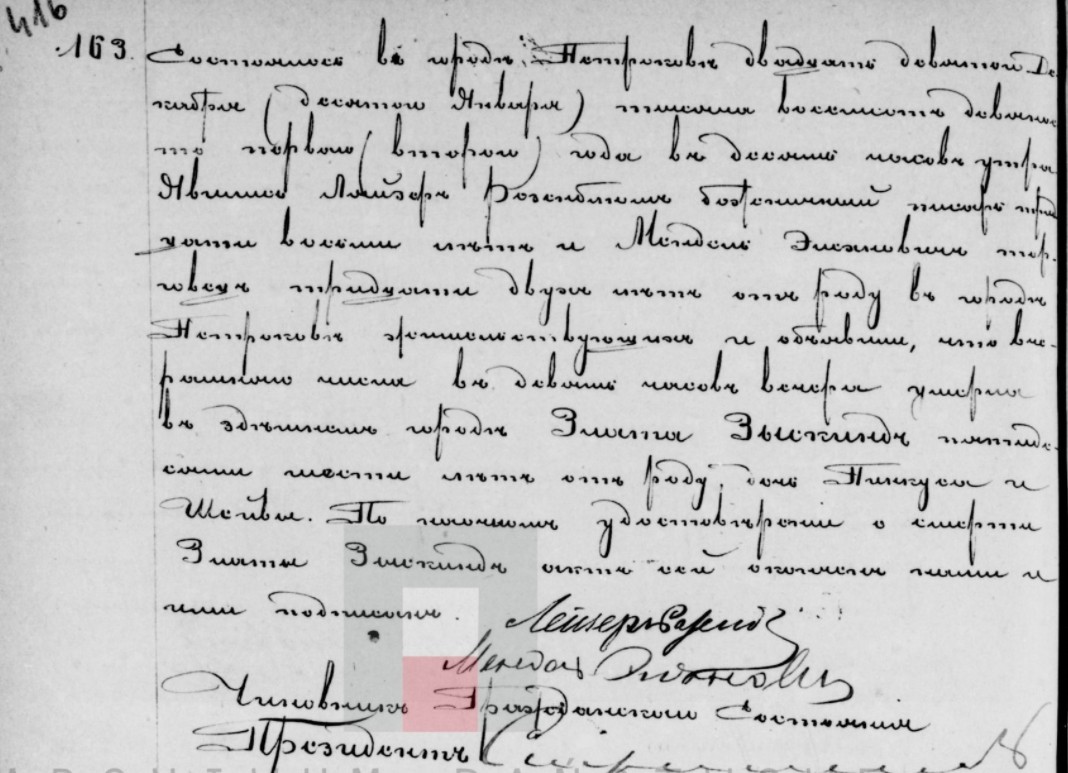 416
163.
Состоялось въ городѣ Петроковѣ двадцать девятаго Де-
кабря (десятаго Января) тысяча восемьсотъ девяно-
сто перваго (второго) года въ десять часовъ утра
Явились Лейзеръ Розенблюмъ божничный писарь трид-
цати восьми лѣтъ и Мендель Эльяновичъ тор-
говецъ тридцати двухъ лѣтъ отъ роду въ городѣ
Петроковѣ жительствующихъ и объявили, что вче-
рашняго числа въ девять часовъ вечера умерла
въ здѣшнемъ городѣ Злата Зыскиндъ пятиде-
сяти шести лѣтъ отъ роду, дочь Пинкуса и
Шейвы. По наочномъ удостовѣреніи о смерти
Златы Зыскиндъ актъ сей окончен нами и
ими подписанъ.
Лейзеръ
Мендель
Чиновникъ Гражданскаго Состоянія
Президентъ